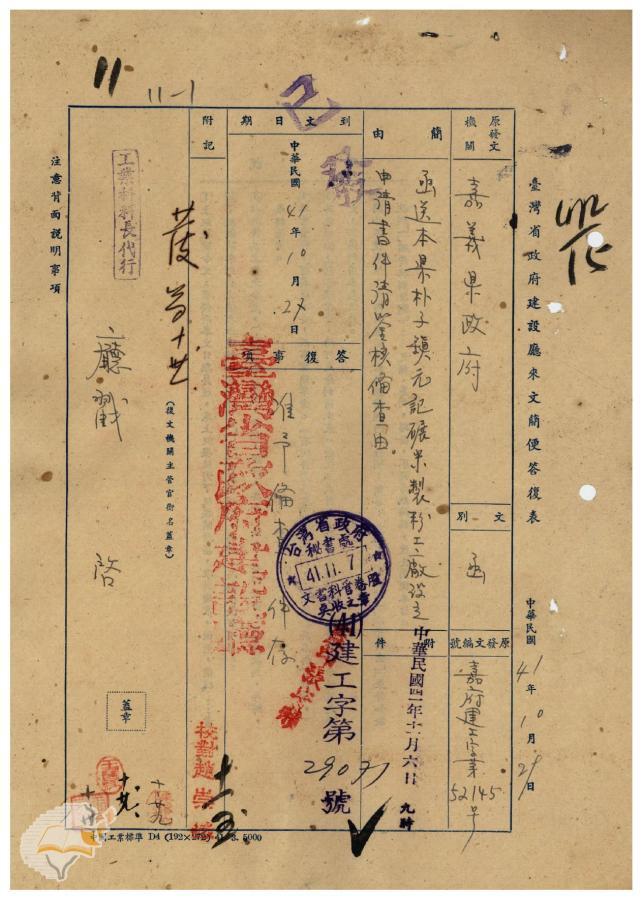 11
11-1
已
臺灣省政府建設廳來文簡便答復表
中華民國41年10月29日
原發文機關
嘉義県政府
文別
函
原發文編號
嘉府建工字第52145号
簡由
函送本県朴子鎮元記碾米製粉工廠設立
申請書件請鑒核備查由
附件
到文日期
中華民國41年10月29日
答復事項
准予備查件存
臺灣省政府建設廳
台灣省政府
秘書處
41.11.7
文書科
收文之章
中華民國四一年十一月六日
九時
(41)建工字第29071號
校對趙
附記
(復文機關主管官銜名蓋章)
廳戳
啓
蓋章
工業材料長代行
注意背面說明事項
中國工業標準 D4 (192×272) 41. 3. 5000